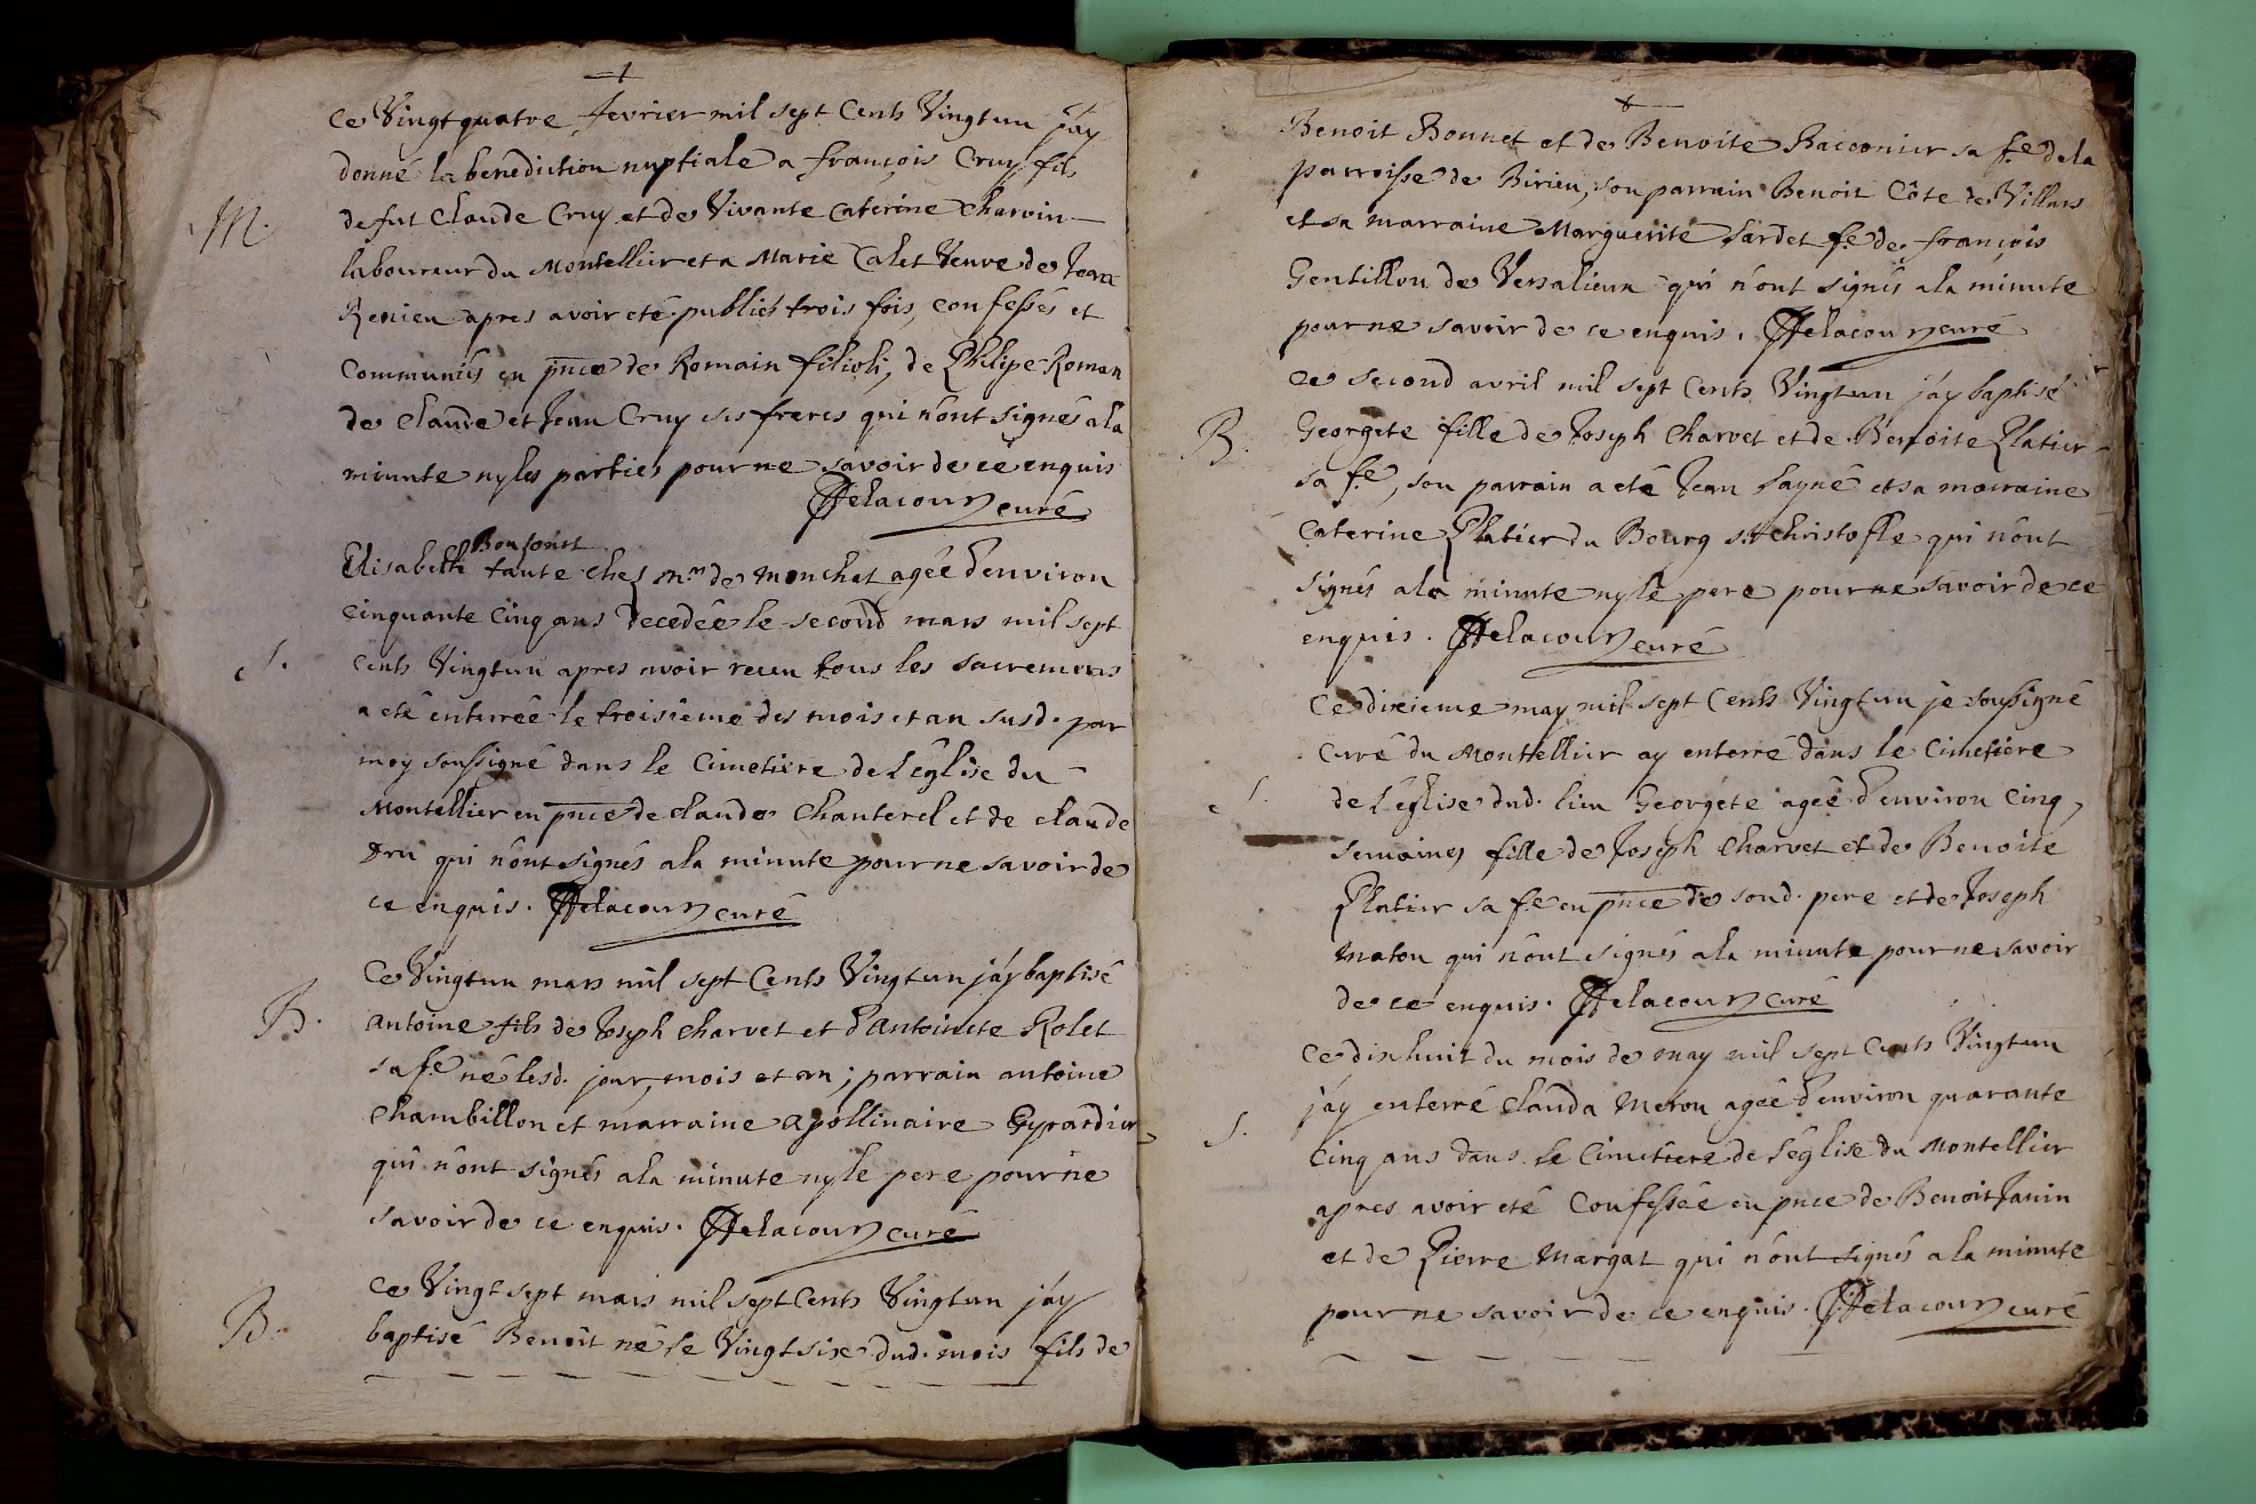 ce Vingtquatre fevrier mil sept Cents Vingtun j'ay
donné la benediction nuptiale a françois Cruy fils
de fut Claude Cruy et de Vivante Caterine Charvin
M.
laboureur du Montellier et a Marie Calet Veuve de Jean
Renieu apres avoir eté publiés trois fois, confessés et
Communiés en pnce de Romain filioli, de Philipe Roman
de Claude et Jean Cruy ses freres qui n'ont signés ala
minute ny les parties pour ne savoir de ce enquis
Delacour curé
Bonfonet
Elisabeth tante chez Mr. de Monchet agée d'environ
cinquante cinq ans decedée le second mars mil sept
S. cents Vingtun apres avoir receu tous les sacremens
a eté enterrée le troisieme des mois et an susd. par
moy soussigné dans le Cimetiere de l'église du
Montellier en pnce de Claude Chanterel et de Claude
Dru qui n'ont signés ala minute pour ne savoir de
ce enquis. Delacour curé
ce Vingtun mars mil sept Cents Vingtun j'ay baptisé
B. antoine fils de Joseph Charvet et d'antoinete Rolet
sa fe. né lesd. jour, mois et an; parrain antoine
Chambillon et marraine apollinaire Gyrardier
qui n'ont signés ala minute ny le pere pour ne
savoir de ce enquis. Delacour curé
ce Vingt sept mars mil sept Cents Vingtun j'ay
B. baptisé Benoit né le Vingt sixe dud. mois fils de
Benoit Bonnet et de Benoite Racconier sa fe. de la
parroisse de Birieu, son parrain Benoit Côte de Villars
et sa marraine Marguerite Sardet fe. de françois
Gentillon de Versalieux qui n'ont signés ala minute
pour ne savoir de ce enquis. Delacour curé
ce second avril mil sept Cents Vingtun j'ay baptisé
B. Georgete fille de Joseph Charvet et de Benoite Platier
sa fe., son parrain a eté Jean Sayné et sa marraine
Caterine Platier du Bourg st. Christofle qui n'ont
signés ala minute ny le pere pour ne savoir de ce
enquis. Delacour curé
ce dixieme may mil sept Cents Vingtun je soussigné
curé du Montellier ay enterré dans le Cimetiere
S. de l'église dud. lieu Georgete agée d'environ cinq
semaines fille de Joseph Charvet et de Benoite
Platier sa fe. en pnce de sond. pere et de Joseph
Maton qui n'ont signés ala minute pour ne savoir
de ce enquis. Delacour curé
ce dixhuit du mois de may mil sept Cents Vingtun
j'ay enterré Clauda Meron agée d'environ quarante
S. cinq ans dans le Cimetiere de l'église du Montellier
apres avoir eté Confessée en pnce de Benoit Janin
et de Pierre Margat qui n'ont signés ala minute
pour ne savoir de ce enquis. Delacour curé